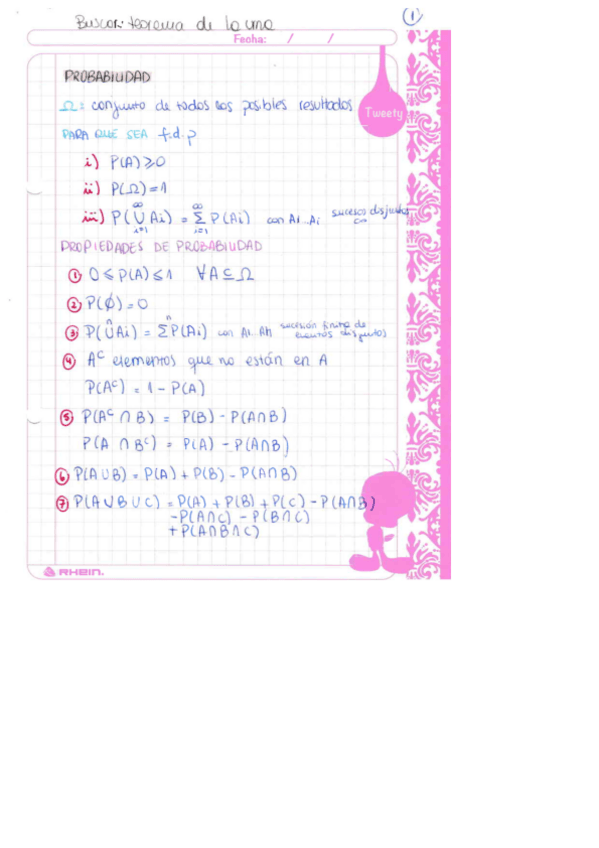 Buscar: teorema de la una
①
Fecha: / /
PROBABILIDAD
Ω: conjunto de todos los posibles resultados
Tweety
PARA QUE SEA f.d.p
i) P(A)≥0
ii) P(Ω)=1
iii) P(⋃_{i=1}^{∞} Ai) = Σ_{i=1}^{∞} P(Ai) con A1...Ai sucesos disjuntos
PROPIEDADES DE PROBABILIDAD
① 0 ≤ P(A) ≤ 1 ∀A⊆Ω
② P(∅)=0
③ P(⋃^{n} Ai) = Σ^{n} P(Ai) con A1...An sucesión finita de eventos disjuntos
④ Aᶜ elementos que no están en A
P(Aᶜ) = 1 - P(A)
⑤ P(Aᶜ ∩ B) = P(B) - P(A∩B)
P(A ∩ Bᶜ) = P(A) - P(A∩B)
⑥ P(A∪B) = P(A) + P(B) - P(A∩B)
⑦ P(A∪B∪C) = P(A) + P(B) + P(C) - P(A∩B)
-P(A∩C) - P(B∩C)
+P(A∩B∩C)
RHEIN.